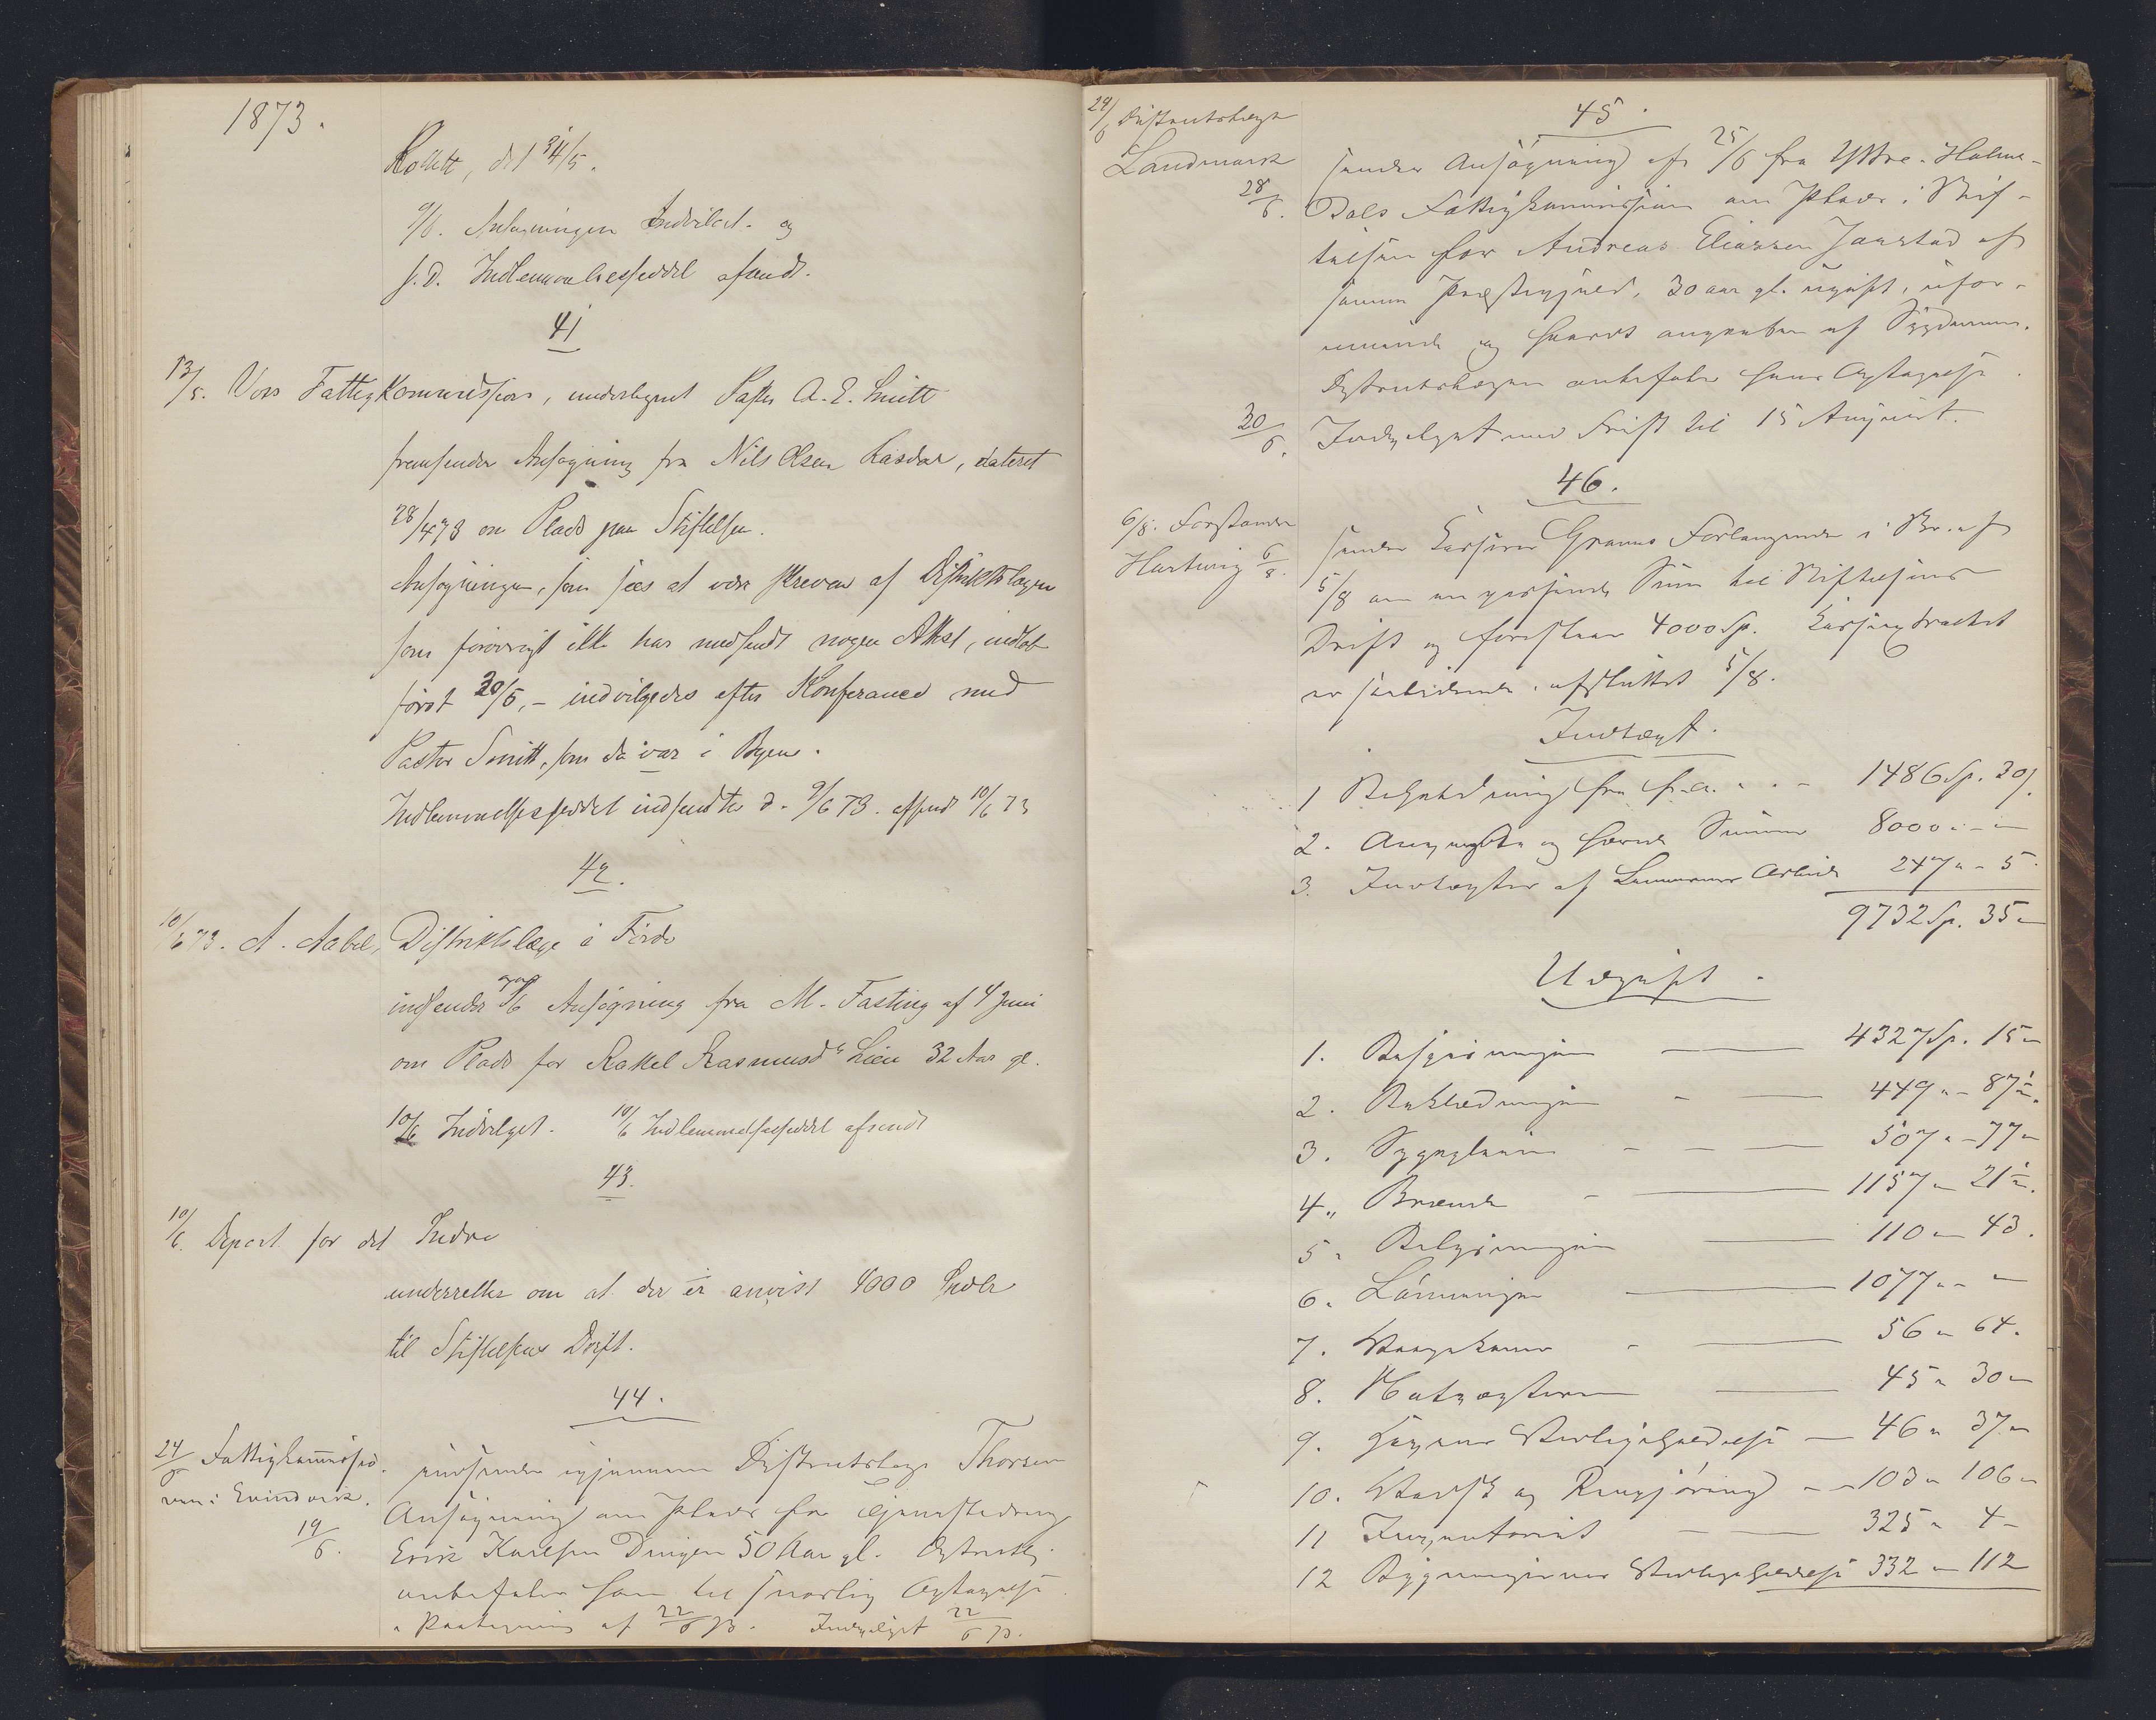 1873.
Kollett, d. 1 34/5.
9/6. Ansøgningen Indvilget. og
s.D. Indlemmelsesseddel afsendt.
41
13/5. Voss Fattigkommission, undertegnet Pastor A. E. Smitt
fremsender Ansøgning fra Nils Olsen Rasdal, dateret
28/4 73 om Plads paa Stiftelsen.
Ansøgningen, som sees at være skreven af Distriktslægen
som forøvrigt ikke har medsendt nogen Attest, indløb
først 30/5, - indvilgedes efter Konferance med
Pastor Smitt, som da var i Byen.
Indlemmelsesseddel indsendtes d. 9/6 73. afsendt 10/6 73
42.
10/6 73. A. Aabel, Distriktslæge i Førde
indsender 9/6 Ansøgning fra M. Fasting af 4 Juni
om Plads for Rakkel Rasmusdtr Lien 32 Aar gl.
10/6 Indvilget. 10/6 Indlemmelsesseddel afsendt
43.
10/6. Depart. for det Indre
underretter om at der er anvist 4000 Spdlr
til Stiftelsens Drift.
44.
24/6 Fattigkommissio-
nen i Evindvik.
19/6.
indsender igjennem Distriktslæge Thorsen
Ansøgning om Plads for Gjenstedung
Erik Karlsen Dingen 50 Aar gl. Distriktsl.
anbefaler ham til snarlig Optagelse
i Paategning af 22/6 73. Indvilget 22/6 73.
29/6 Distriktslæge
Landmark
28/6.
45.
sender Ansøgning af 25/6 fra Yttre Holme-
dals Fattigkommission om Plads i Stif-
telsen for Andreas Eliassen Jarstad af
samme Præstegjeld, 30 aar gl. ugift, ufor-
muende og haardt angreben af Sygdommen.
Distriktslægen anbefaler hans Optagelse.
30/6. Indvilget med Frist til 15 August.
46.
6/8. Forstander
Hartwig 6/8.
sender Kasserer Grans Forlangende i Br. af
5/8 om en passende Sum til Stiftelsens
Drift og foreslaar 4000 Sp. Kasseextractet
er saalydende: afsluttet 5/8.
Indtægt.
1 Beholdning fra f. A. . . - 1486 Sp. 30/.
2. Anviste og hævede Summer 8000 " - "
3. Indtægter af Lemmernes Arbeide 247 " - 5.
9732 Sp. 35 "
Udgift.
1. Bespisningen 4327 Sp. 15 "
2. Beklædningen - 449 " - 87 ½.
3. Sygepleien - - 507 " - 77 "
4. Brænde - 1157 " 21 ½.
5. Belysningen 110 " 43.
6. Lønninger 1077 " - "
7. Vaagekoner - 56 " 64.
8. Natvægteren 45 " 30 "
9. Havens Vedligeholdelse - 46 " 37 "
10. Vadsk og Rengjøring - - 103 " 106 "
11 Inventariet - 325 " 4 -
12 Bygningernes Vedligeholdelse 332 " 112